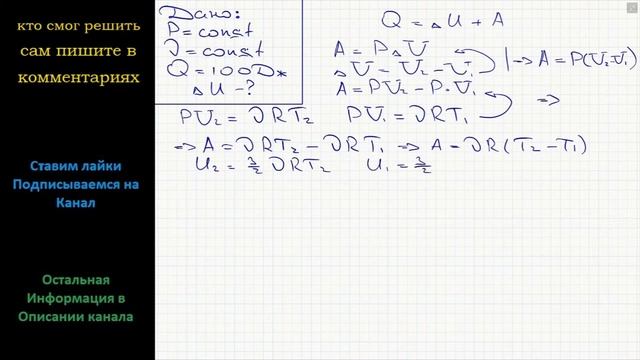 кто смог решить
сам пишите в
комментариях
Ставим лайки
Подписываемся на
Канал
Остальная
Информация в
Описании канала
Дано:
P = const
ν = const
Q = 100 Дж
ΔU - ?
Q = ΔU + A
A = PΔV
ΔV = V₂ - V₁
| => A = P(V₂-V₁)
A = PV₂ - P·V₁
=>
PV₂ = νRT₂ PV₁ = νRT₁
=> A = νRT₂ - νRT₁ => A = νR(T₂-T₁)
U₂ = 3/2 νRT₂ U₁ = 3/2